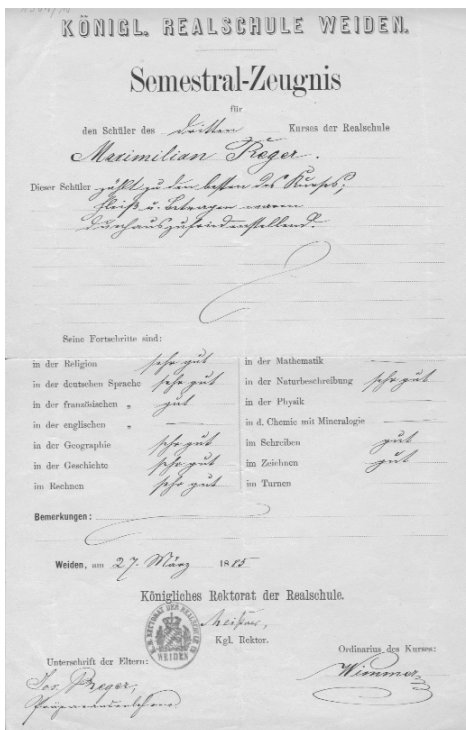 KÖNIGL. REALSCHULE WEIDEN.
Semestral-Zeugnis
für
den Schüler des dritten Kurses der Realschule
Maximilian Reger.
Dieser Schüler zählt zu den besten des Kurses;
Fleiß u. Betragen waren
durchaus zufriedenstellend.
Seine Fortschritte sind:
in der Religion sehr gut
in der deutschen Sprache sehr gut
in der französischen „ gut
in der englischen „ —
in der Geographie sehr gut
in der Geschichte sehr gut
im Rechnen sehr gut
in der Mathematik —
in der Naturbeschreibung sehr gut
in der Physik —
in d. Chemie mit Mineralogie —
im Schreiben gut
im Zeichnen gut
im Turnen —
Bemerkungen:
Weiden, am 27. März 1885
Königliches Rektorat der Realschule.
Kgl. Rektor.
WEIDEN
Unterschrift der Eltern:
Jos. Reger,
Präparandenlehrer.
Ordinarius des Kurses:
Wimmer